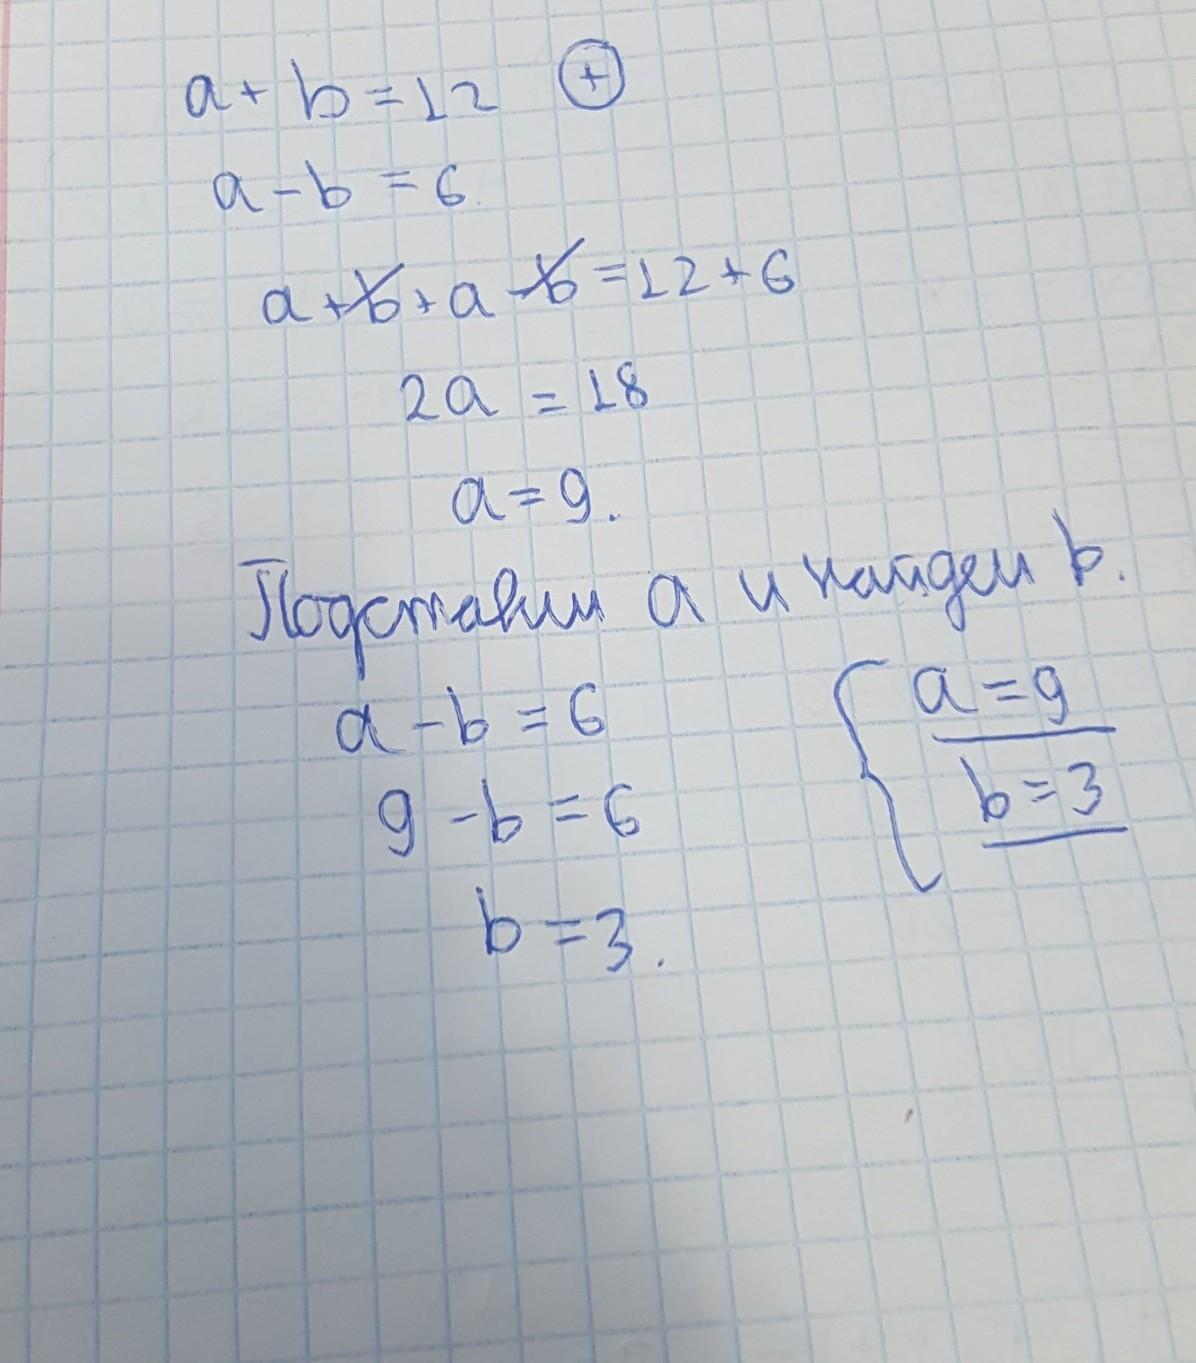 a + b = 12 ⊕
a - b = 6.
a + b + a - b = 12 + 6
2a = 18
a = 9.
Подставим a и найдем b.
a - b = 6
9 - b = 6
b = 3.
{ a = 9
b = 3